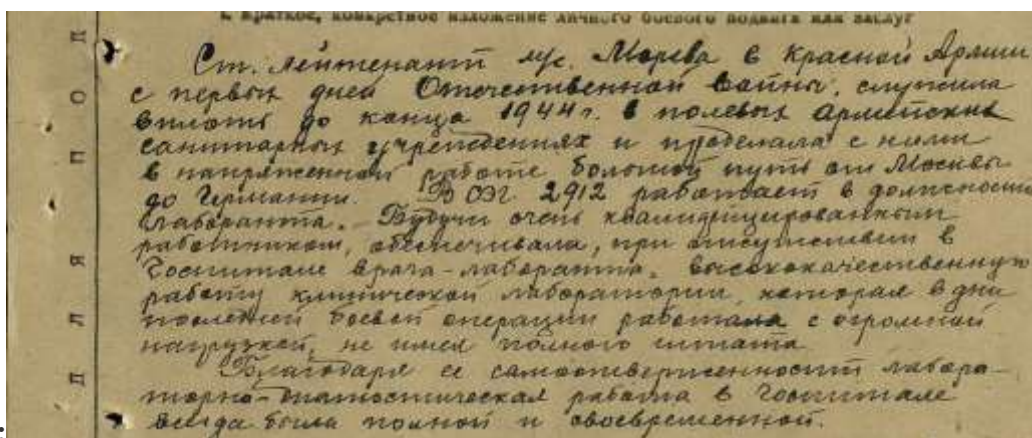 I. Краткое, конкретное изложение личного боевого подвига или заслуг
Ст. лейтенант м/с. Марева в Красной Армии
с первых дней Отечественной войны, служила
вплоть до конца 1944 г. в полевых армейских
санитарных учреждениях и проделала с ними
в напряженной работе большой путь от Москвы
до Германии. В ЭГ 2912 работает в должности
лаборанта. Будучи очень квалифицированным
работником, обеспечивала, при отсутствии в
Госпитале врача-лаборанта, высококачественную
работу клинической лаборатории, которая в дни
последней боевой операции работала с огромной
нагрузкой, не имея полного штата
Благодаря ее самоотверженности лабора-
торно-диагностическая работа в Госпитале
всегда была полной и своевременной.
Д Л Я П О Д